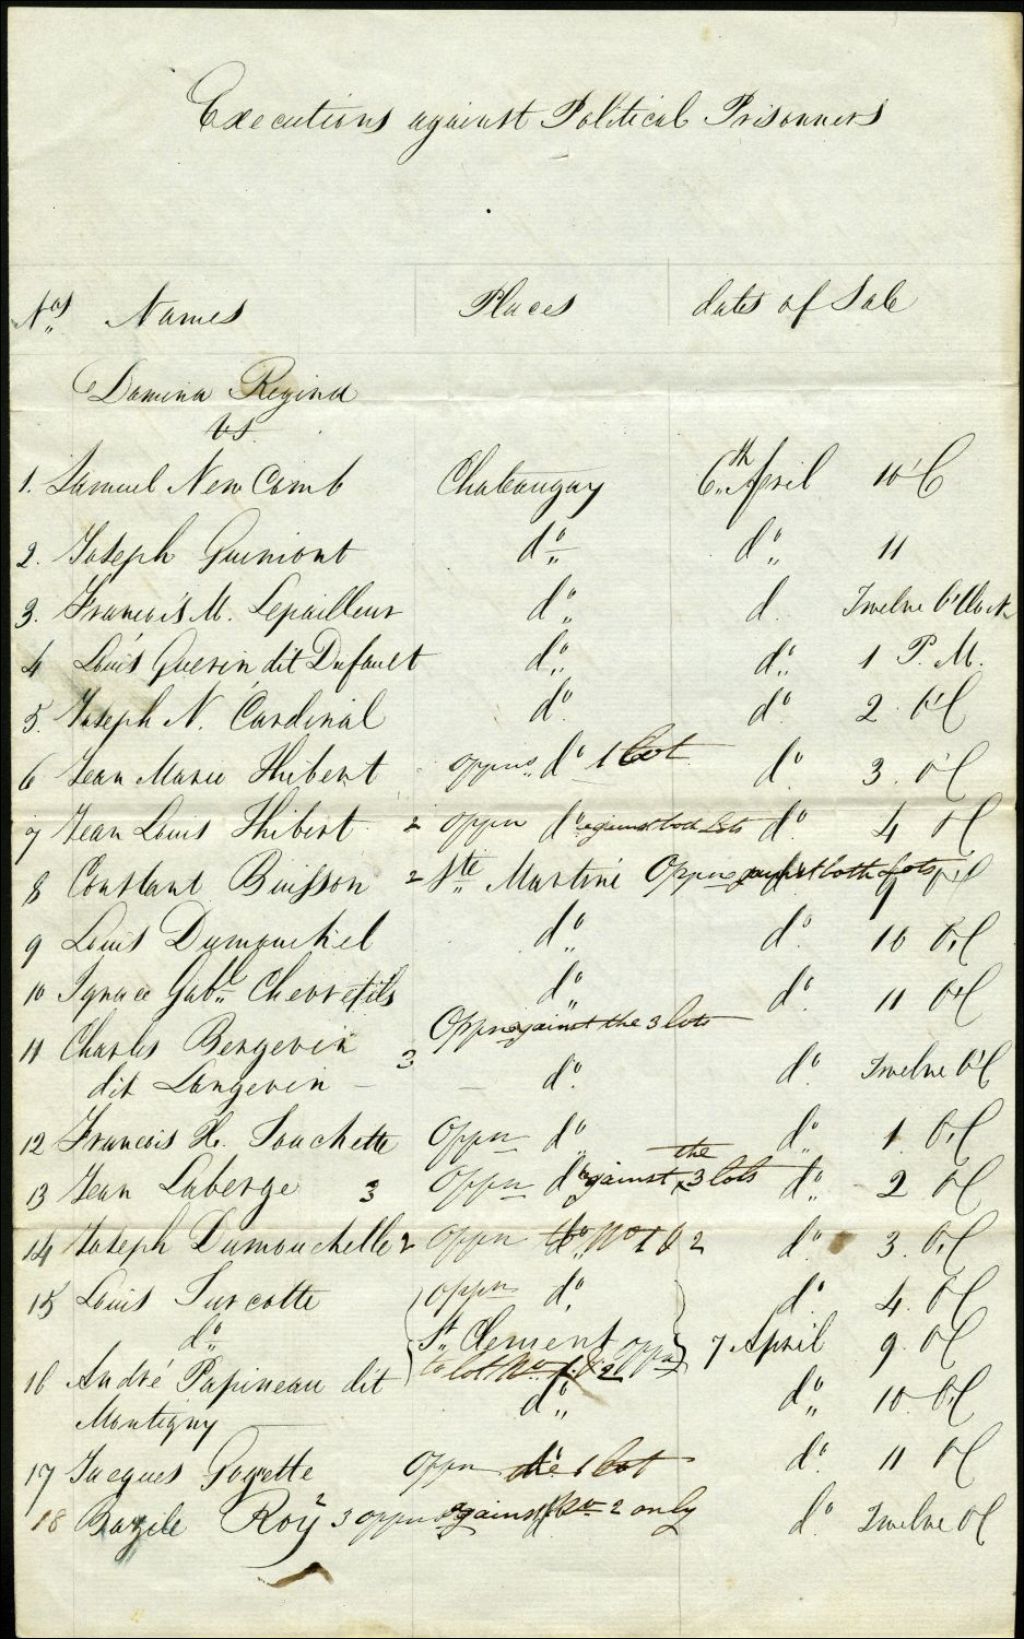 Executions against Political Prisonners
Nos Names Places dates of Sale
Domina Regina
vs.
1. Samuel New Comb Chateaugay 6th April 10 O'C
2. Joseph Guimont do do 11
3. Francois M. Lepailleur do d. Twelve O'Clock
4 Louis Guerin dit Dufault do do 1 P.M.
5. Joseph N. Cardinal do do 2 O'C
6 Jean Marie Thibert oppns do 1 lot do 3. O'C
7 Jean Louis Thibert 2 oppn do against both lots do 4 O'C
8 Constant Buisson 2 Ste Martine Oppns against both lots 9 O'C
9 Louis Dumouchel do do 10 O'C
10 Ignace Gabl Chevrefils do do 11 O'C
Oppn against the 3 lots
11 Charles Bergevin 3
dit Langevin — do do Twelve O'C
12 Francois X. Touchette Oppn do do 1 O'C
13 Jean Laberge 3 Oppn do against the 3 lots do 2 O'C
14 Joseph Dumouchelle 2 oppn do No 1 & 2 do 3. O'C
15 Louis Turcotte oppn do do 4. O'C
do St Clement oppn 7 April 9. O'C
to lot No 1. & 2
16 André Papineau dit do do 10 O'C
Montigny
17 Jacques Goyette Oppn 1 lot do 11 O'C
18 Bazile Roy 2 3 oppns against No 2 only do Twelve O'C